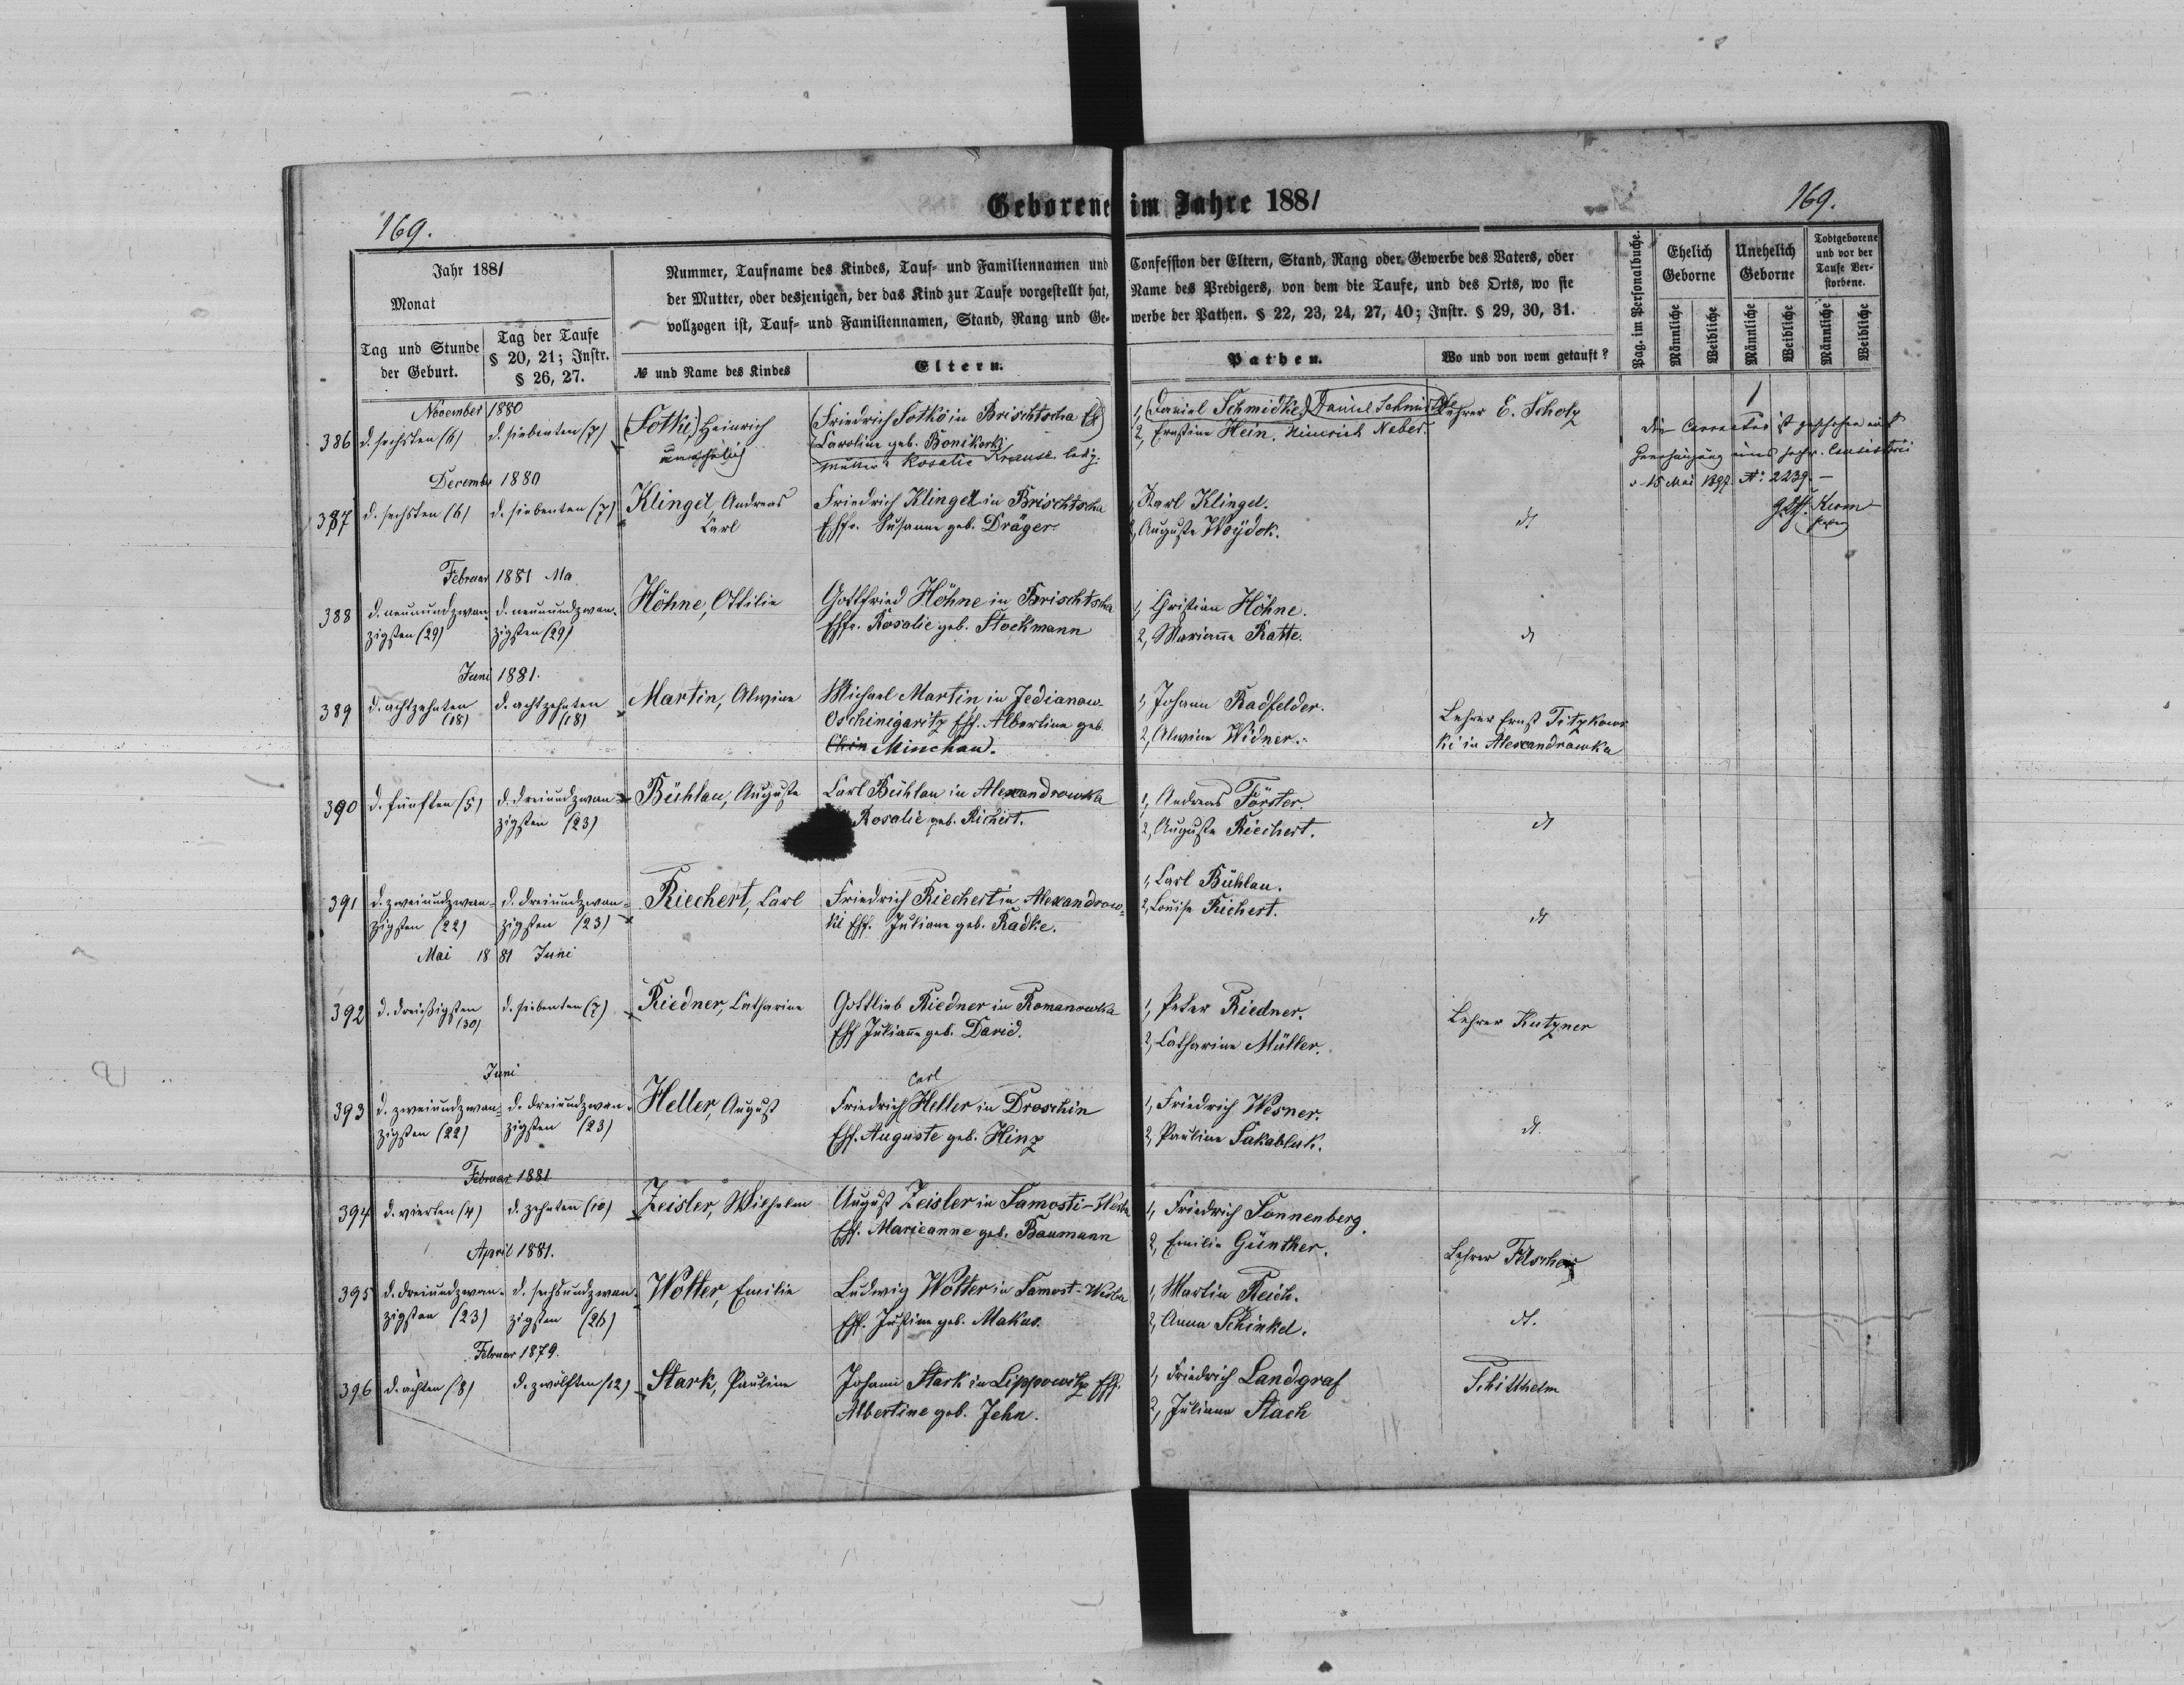 169.
Geborene im Jahre 1881
169.
Jahr 1881
Monat
Tag und Stunde der Geburt.
Tag der Taufe
§ 20, 21; Instr.
§ 26, 27.
Nummer, Taufname des Kindes, Tauf- und Familiennamen und
der Mutter, oder desjenigen, der das Kind zur Taufe vorgestellt hat,
vollzogen ist, Tauf- und Familiennamen, Stand, Rang und Ge-
№ und Name des Kindes
Eltern.
Confession der Eltern, Stand, Rang oder Gewerbe des Vaters, oder
Name des Predigers, von dem die Taufe, und des Orts, wo sie
werbe der Pathen. § 22, 23, 24, 27, 40; Instr. § 29, 30, 31.
Pathen.
Wo und von wem getauft?
Pag. im Personalbuche.
Ehelich
Geborne
Unehelich
Geborne
Todtgeborene
und vor der
Taufe Ver-
storbene.
Männliche
Weibliche
Männliche
Weibliche
Männliche
Weibliche
November 1880
386 d. sechsten (6) d. siebenten (7) (Sotki,) Heinrich
unehelich
(Friedrich Sotko in Brischtscha Eh)
(Caroline geb. Bonikorki
Mutter: Rosalie Krause ledig.
1, (Daniel Schmidke,) Daniel Schmidtke
2, Ernstine Hein. Heinrich Neber.
Lehrer E. Scholz
1
Die Correctur ist geschehen mit
Genehmigung eines hochw. Consistorii
v. 15 Mai 1897. №: 2239. —
December 1880
387 d. sechsten (6) d. siebenten (7) Klingel, Andreas
Carl
Friedrich Klingel in Brischtscha
Ehfr. Susanna geb. Dräger.
1, Karl Klingel.
2, Auguste Woydok.
dt
Februar 1881 Ma
388 d. neunundzwan- d. neunundzwan- Höhne, Ottilie
zigsten (29) zigsten (29)
Gottfried Höhne in Brischtscha
Ehfr. Rosalie geb. Stockmann
1, Christian Höhne.
2, Marianna Ratte.
dt
Juni 1881.
389 d. achtzehnten (18) d. achtzehnten (18) Martin, Alwine
Michael Martin in Jedianow-
Oschinigaritz Ehf. Albertine geb.
Minchau.
1, Johann Radfelder.
2, Alwine Widner.
Lehrer Ernst Titzkows
ki in Alexandrowka
390 d. fünften (5) d. dreiundzwan- Bühlau, Auguste
zigsten (23)
Carl Bühlau in Alexandrowka
Rosalie geb. Richert.
1, Andreas Förster.
2, Auguste Riechert.
dt
391 d. zweiundzwan- d. dreiundzwan- Riechert, Carl
zigsten (22) zigsten (23)
Friedrich Riechert in Alexandrow-
ki Ehf. Juliane geb. Radke.
1, Carl Bühlau.
2, Louise Richert.
dt
Mai 1881 Juni
392 d. dreißigsten (30) d. siebenten (7) Riedner, Catharine
Gottlieb Riedner in Romanowka
Ehf Julianna geb. David.
1, Peter Riedner.
2, Catharine Müller.
Lehrer Kutzner
Juni
393 d. zweiundzwan- d. dreiundzwan- Heller, August
zigsten (22) zigsten (23)
Carl
Friedrich Heller in Droschin
Ehf. Auguste geb. Hinz
1, Friedrich Wesner.
2, Pauline Sakabluk.
dt.
Februar 1881
394 d. vierten (4) d. zehnten (10) Zeisler, Wilhelm
August Zeisler in Samosti-Werba
Ehf. Marieanne geb. Baumann
1, Friedrich Sonnenberg.
2, Emilie Günther.
Lehrer Felscher
April 1881.
395 d. dreiundzwan- d. sechsundzwan- Wolter, Emilie
zigsten (23) zigsten (26)
Ludwig Wolter in Samost-Werba
Ehf. Justine geb. Makus.
1, Martin Reich.
2, Anna Schinkel.
dt.
Februar 1879.
396 d. achten (8) d. zwölften (12) Stark, Pauline
Johann Stark in Lippowitz Ehf.
Albertine geb. Jehn.
1, Friedrich Landgraf
2, Juliana Stach
Schillhelm